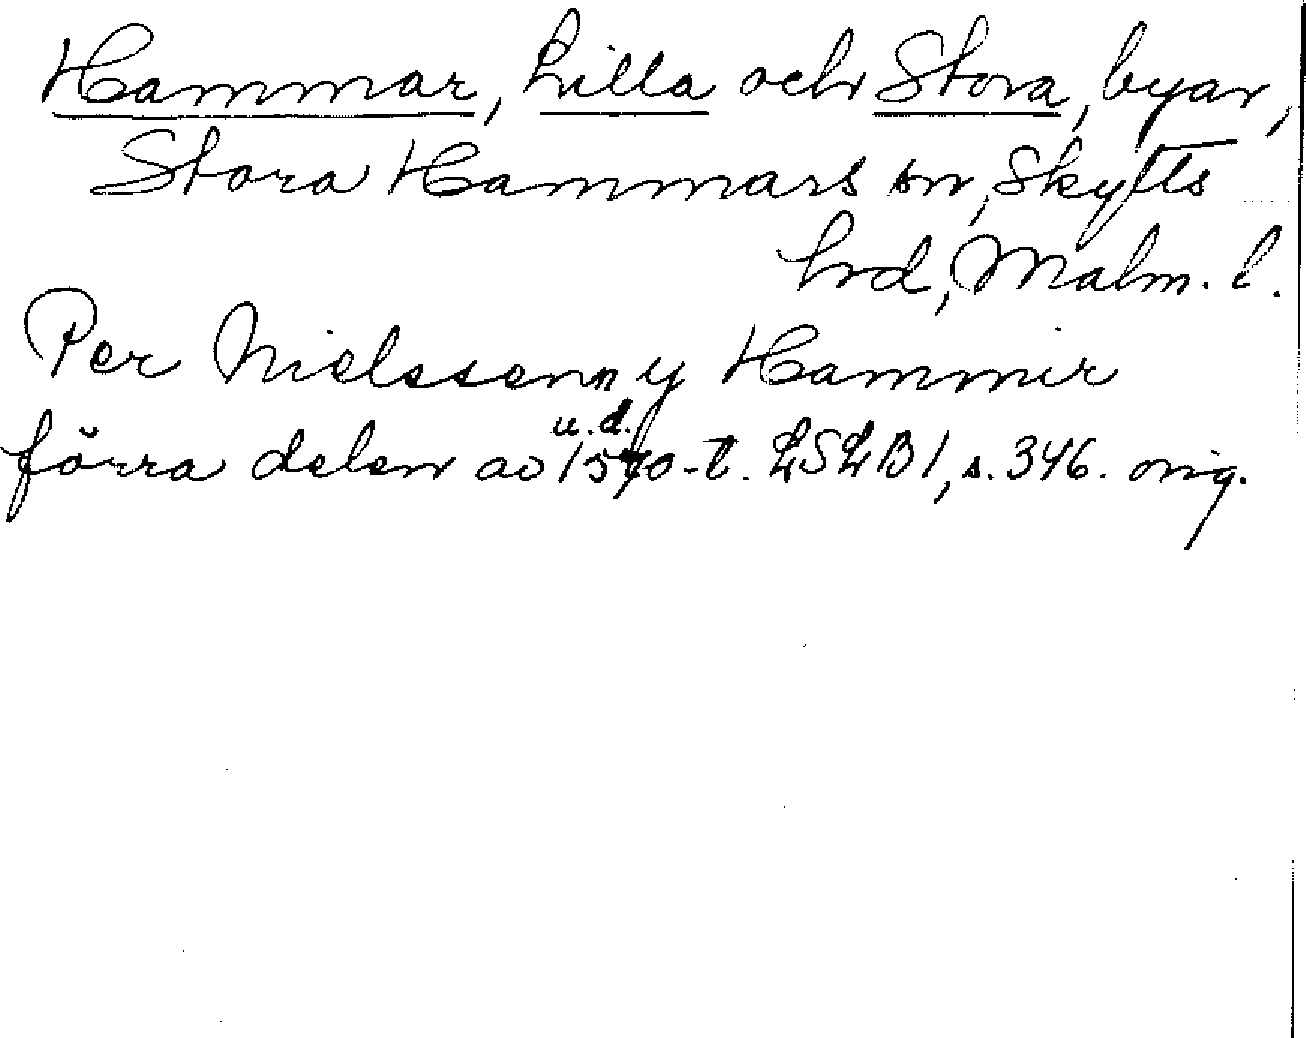 Hammar, Lilla och Stora, byar,
Stora Hammars sn, Skytts
hrd, Malm. l.
Per Nielssenn y Hammer
u.d.
förra delen av 1570-t. LSLB1, s. 346. orig.